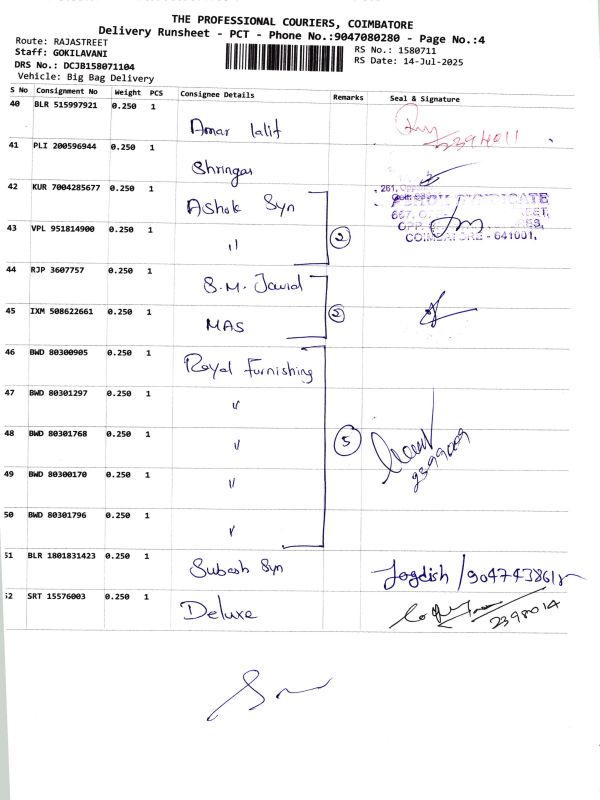 THE PROFESSIONAL COURIERS, COIMBATORE
Delivery Runsheet - PCT - Phone No.:9047080280 - Page No.:4
Route: RAJASTREET
RS No.: 1580711
Staff: GOKILAVANI
RS Date: 14-Jul-2025
DRS No.: DCJB158071104
Vehicle: Big Bag Delivery
S No Consignment No Weight PCS Consignee Details Remarks Seal & Signature
40 BLR 515997921 0.250 1 Amar lalit
41 PLI 200596944 0.250 1 Shringar
42 KUR 7004285677 0.250 1 Ashok Syn
43 VPL 951814900 0.250 1 〃 2
COIMBATORE - 641001.
44 RJP 3607757 0.250 1 S.M. Javid
45 IXM 508622661 0.250 1 MAS 2
46 BWD 80300905 0.250 1 Royal Furnishing
47 BWD 80301297 0.250 1 〃
48 BWD 80301768 0.250 1 〃 5 2399009
49 BWD 80300170 0.250 1 〃
50 BWD 80301796 0.250 1 〃
51 BLR 1801831423 0.250 1 Subash Syn Jogdish /9047438618
52 SRT 15576003 0.250 1 Deluxe 2398014